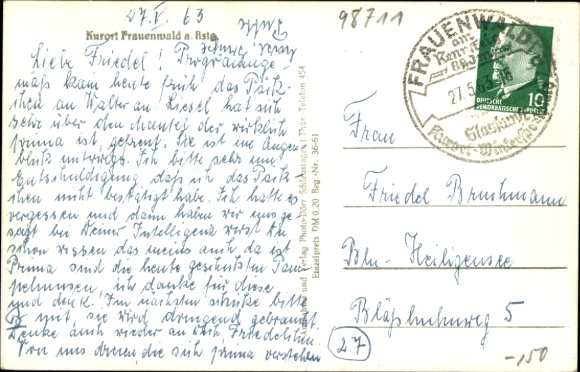 27.V.63
98711
Kurort Frauenwald a. Rstg.
Liebe Friedel! Programmge-
mäß kam heute früh das Päck-
chen an Walter an. Liesel hat sich
sehr über den Mantel der wirklich
prima ist, gefreut. Sie ist im Augen
blick unterwegs. Ich bitte sehr um
Entschuldigung daß ich das Päck-
chen nicht bestätigt habe. Ich hatte es
vergessen und dann haben wir uns ge-
sagt bei Deiner Intelligenz wirst Du
schon wissen das meins auch da ist
Prima sind die heute geschickten Pam
pelmusen, ich danke für diese
und denke. Im nächsten schicke bitte
mit, sie wird dringend gebraucht.
Denke auch wieder an mich, Friedelchen.
Von uns dreien, die sich prima verstehen
Aufnahme und Verlag Photo-Dörr Schleusingen i. Thür. Telefon 454
Einzelpreis DM 0,20 Reg.-Nr. 36-61
FRAUENWALD
am
Rennsteig
27.5.63
Kurort-Winter
DEUTSCHE
DEMOKRATISCHE REPUBLIK
10
Frau
Friedel Bruhmann
Bln-Heiligensee
5
27
-,150